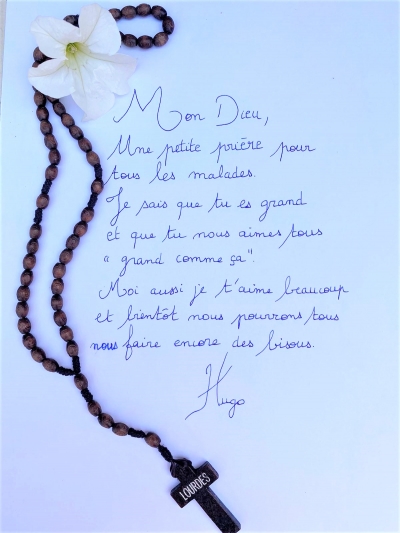 Mon Dieu,
Une petite prière pour
tous les malades.
Je sais que tu es grand
et que tu nous aimes tous
"grand comme ça".
Moi aussi je t'aime beaucoup
et bientôt nous pourrons tous
nous faire encore des bisous.
Hugo
LOURDES